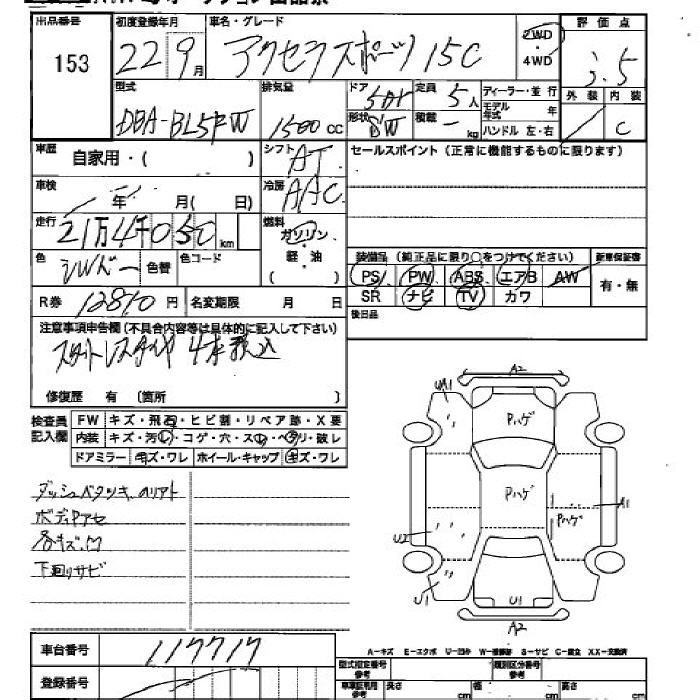 出品番号 初度登録年月 車名・グレード 2WD 評価点
153 22 9月 アクセラスポーツ 15C 4WD 3.5
型式 排気量 ドア 5DR 定員 5人 ディーラー・並行 外装 内装
DBA-BL5FW 1500cc 形状 SW 積載 - kg モデル年式 年 C
ハンドル 左・右
車歴 自家用・( ) シフト AT セールスポイント (正常に機能するものに限ります)
車検 年 月( 日) 冷房 AAC
走行 21万4千050km 燃料 ガソリン
色 シルバー 色替 色コード 軽・油
( )
装備品 (純正品に限り○をつけてください) 新車保証書
PS PW ABS エアB AW 有・無
SR ナビ TV カワ
R券 12810円 名変期限 月 日 後日品
注意事項申告欄 (不具合内容等は具体的に記入して下さい)
スタットレスタイヤ 4本積込
修復歴 有 (箇所 )
検査員記入欄 FW キズ・飛石・ヒビ割・リペア跡・X要
内装 キズ・汚レ・コゲ・穴・スレ・ヘタリ・破レ
ドアミラー キズ・ワレ ホイール・キャップ キズ・ワレ
ダッシュベタツキ
ボディヤケ
各キズ.凹
下廻りサビ
A2
UA1
Pハゲ
Pハゲ
Pハゲ
A1
U2
U1
U1
A2
A-キズ E-エクボ U-凹み W-補修跡 S-サビ C-腐食 XX-交換済
車台番号 117717
登録番号
型式指定番号 参考 類別区分番号 参考
車庫証明用 参考 長さ cm 幅 cm 高さ cm